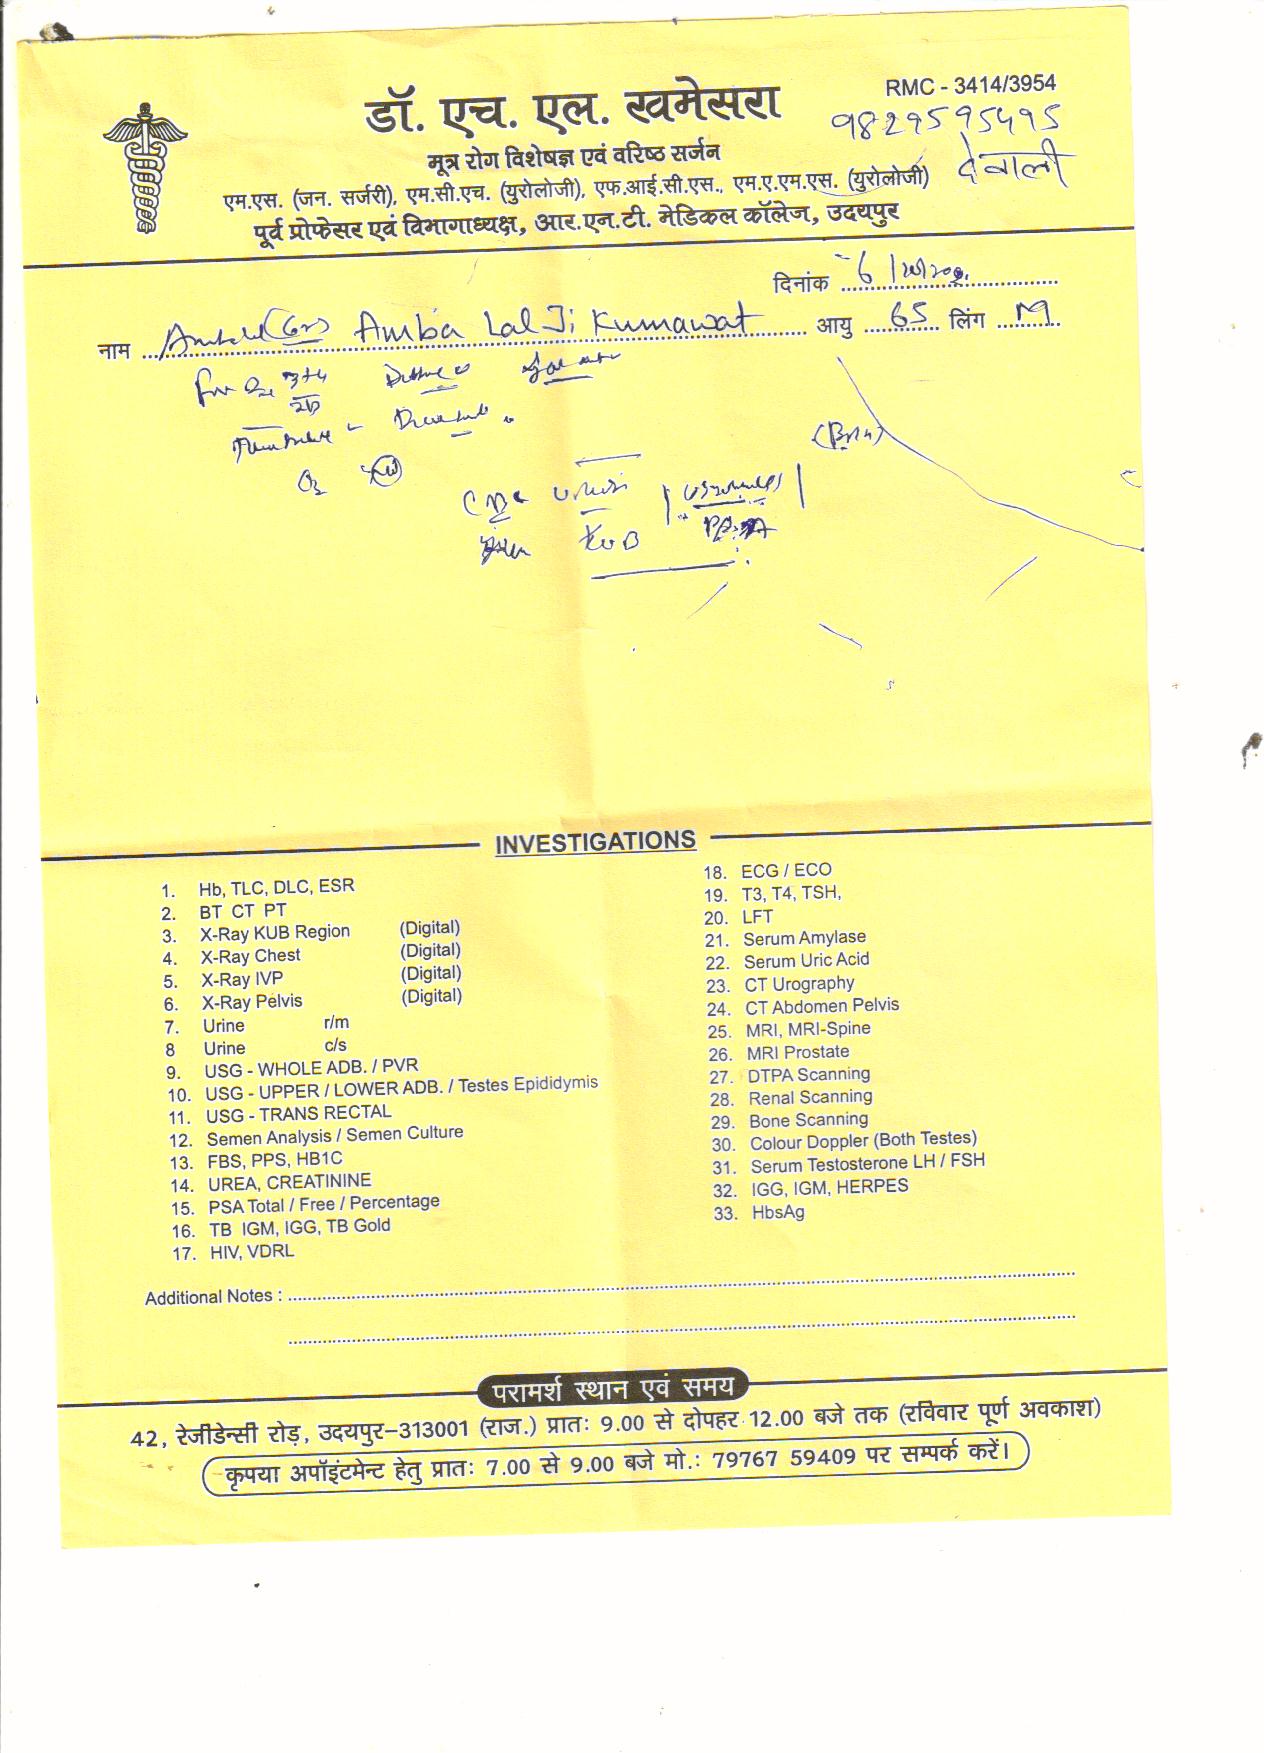 RMC - 3414/3954
डॉ. एच. एल. खमेसरा
9829595495
मूत्र रोग विशेषज्ञ एवं वरिष्ठ सर्जन
देवाली
एम.एस. (जन. सर्जरी), एम.सी.एच. (युरोलोजी), एफ.आई.सी.एस., एम.ए.एम.एस. (युरोलोजी)
पूर्व प्रोफेसर एवं विभागाध्यक्ष, आर.एन.टी. मेडिकल कॉलेज, उदयपुर
दिनांक 6
नाम Amba Lal Ji Kumawat आयु 65 लिंग M
KUB
INVESTIGATIONS
1. Hb, TLC, DLC, ESR
2. BT CT PT
3. X-Ray KUB Region (Digital)
4. X-Ray Chest (Digital)
5. X-Ray IVP (Digital)
6. X-Ray Pelvis (Digital)
7. Urine r/m
8 Urine c/s
9. USG - WHOLE ADB. / PVR
10. USG - UPPER / LOWER ADB. / Testes Epididymis
11. USG - TRANS RECTAL
12. Semen Analysis / Semen Culture
13. FBS, PPS, HB1C
14. UREA, CREATININE
15. PSA Total / Free / Percentage
16. TB IGM, IGG, TB Gold
17. HIV, VDRL
18. ECG / ECO
19. T3, T4, TSH,
20. LFT
21. Serum Amylase
22. Serum Uric Acid
23. CT Urography
24. CT Abdomen Pelvis
25. MRI, MRI-Spine
26. MRI Prostate
27. DTPA Scanning
28. Renal Scanning
29. Bone Scanning
30. Colour Doppler (Both Testes)
31. Serum Testosterone LH / FSH
32. IGG, IGM, HERPES
33. HbsAg
Additional Notes :
परामर्श स्थान एवं समय
42, रेजीडेन्सी रोड़, उदयपुर-313001 (राज.) प्रातः 9.00 से दोपहर 12.00 बजे तक (रविवार पूर्ण अवकाश)
कृपया अपॉइंटमेन्ट हेतु प्रातः 7.00 से 9.00 बजे मो.: 79767 59409 पर सम्पर्क करें।